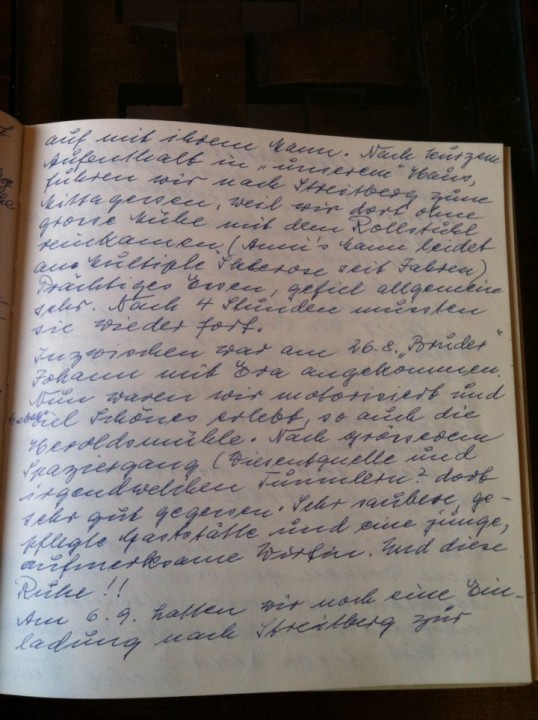 auf mit ihrem Mann. Nach kurzem
Aufenthalt in „unserem" Haus,
fuhren wir nach Streitberg zum
Mittagessen, weil wir dort ohne
grosse Mühe mit dem Rollstuhl
reinkamen (Anni's Mann leidet
an Multiple Sklerose seit Jahren)
Prächtiges Essen, gefiel allgemein
sehr. Nach 4 Stunden mussten
sie wieder fort.
Inzwischen war am 26.8. „Bruder"
Johann mit Eva angekommen.
Nun waren wir motorisiert und
viel Schönes erlebt, so auch die
Heroldsmühle. Nach grösserem
Spaziergang (Wiesentquelle und
irgendwelchen Tümmlern? dort
sehr gut gegessen. Sehr saubere, ge-
pflegte Gaststätte und eine junge,
aufmerksame Wirtin. Und diese
Ruhe!!
Am 6.9. hatten wir noch eine Ein-
ladung nach Streitberg zur